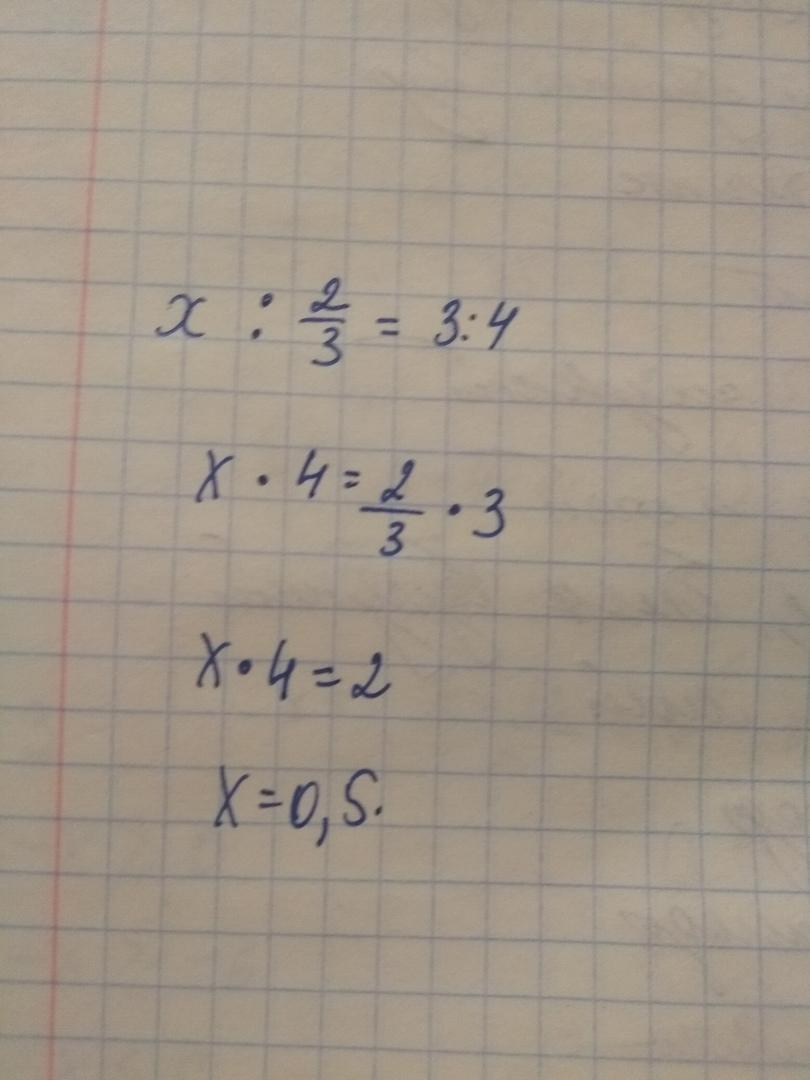 x : 2/3 = 3:4
x · 4 = 2/3 · 3
x · 4 = 2
x = 0,5.